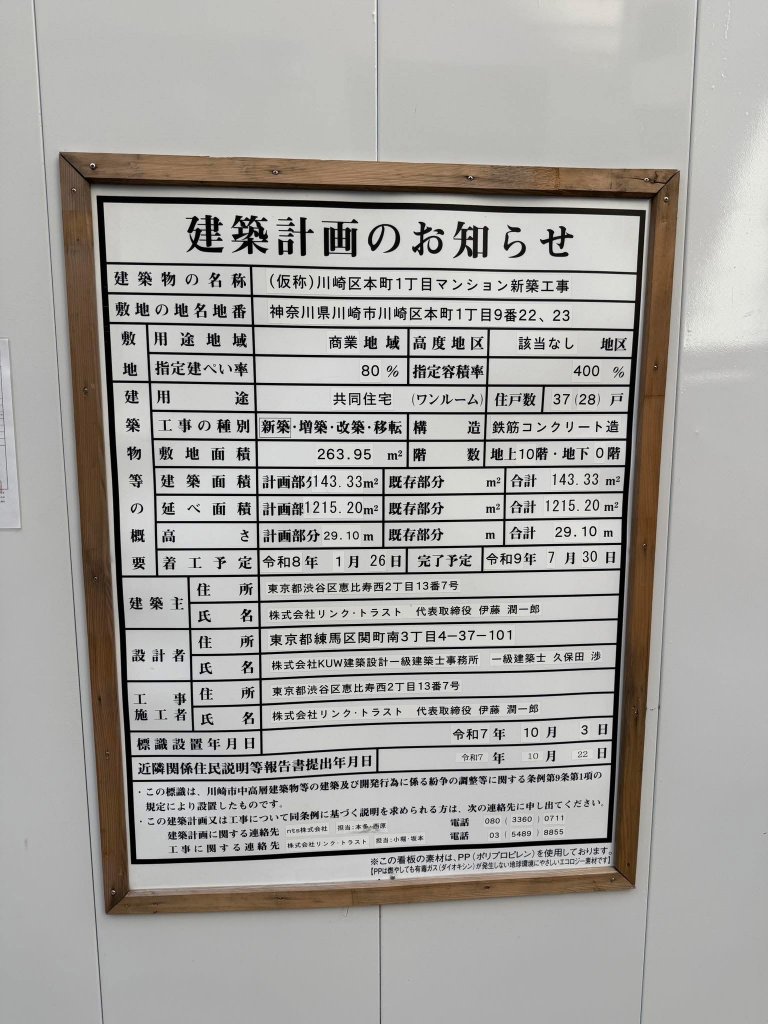 建築計画のお知らせ
建築物の名称 (仮称)川崎区本町1丁目マンション新築工事
敷地の地名地番 神奈川県川崎市川崎区本町1丁目9番22、23
敷地 用途地域 商業地域 高度地区 該当なし 地区
指定建ぺい率 80% 指定容積率 400%
建築物等の概要 用途 共同住宅 (ワンルーム) 住戸数 37(28)戸
工事の種別 新築・増築・改築・移転 構造 鉄筋コンクリート造
敷地面積 263.95 m² 階数 地上10階・地下0階
建築面積 計画部分143.33m² 既存部分 m² 合計 143.33 m²
延べ面積 計画部1215.20m² 既存部分 m² 合計 1215.20 m²
高さ 計画部分 29.10 m 既存部分 m 合計 29.10 m
着工予定 令和8年 1月26日 完了予定 令和9年 7月30日
建築主 住所 東京都渋谷区恵比寿西2丁目13番7号
氏名 株式会社リンク・トラスト 代表取締役 伊藤 潤一郎
設計者 住所 東京都練馬区関町南3丁目4-37-101
氏名 株式会社KUW建築設計一級建築士事務所 一級建築士 久保田 渉
工事施工者 住所 東京都渋谷区恵比寿西2丁目13番7号
氏名 株式会社リンク・トラスト 代表取締役 伊藤 潤一郎
標識設置年月日 令和7年 10月 3日
近隣関係住民説明等報告書提出年月日 令和7年 10月 22日
・この標識は、川崎市中高層建築物等の建築及び開発行為に係る紛争の調整等に関する条例第9条第1項の
規定により設置したものです。
・この建築計画又は工事について同条例に基づく説明を求められる方は、次の連絡先に申し出てください。
建築計画に関する連絡先 nts株式会社 担当:本多・西原 電話 080(3360)0711
工事に関する連絡先 株式会社リンク・トラスト 担当:小幡・坂本 電話 03(5489)8855
※この看板の素材は、PP(ポリプロピレン)を使用しております。
【PPは燃やしても有毒ガス(ダイオキシン)が発生しない地球環境にやさしいエコロジー素材です】